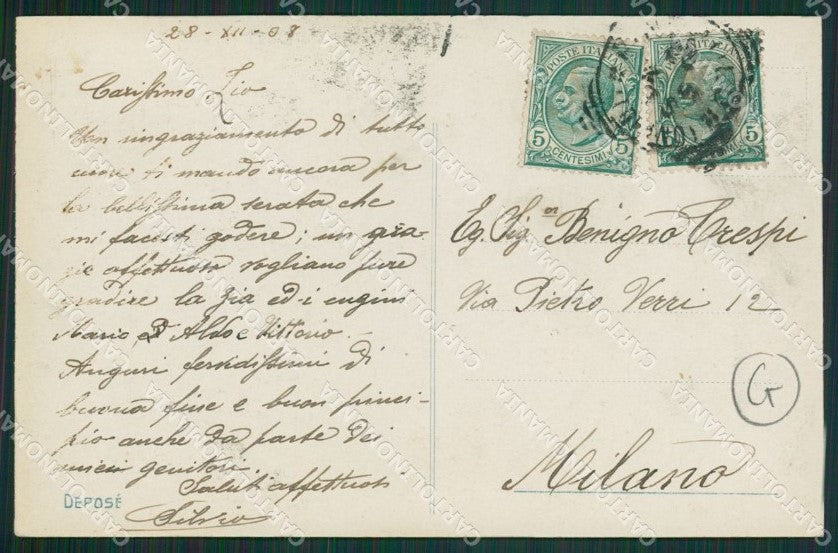 28-XII-08
Carissimo Zio
Un ringraziamento di tutto
cuore ti mando ancora per
la bellissima serata che
mi facesti godere; un gra-
zie affettuoso vogliano pure
gradire la Zia ed i cugini
Mario Aldo e Vittorio.
Auguri fervidissimi di
buona fine e buon princi-
pio anche da parte dei
miei genitori.
Saluti affettuosi
Silvio
DEPOSÉ
POSTE ITALIANE
5 CENTESIMI 5
POSTE ITALIANE
CENTESIMI 5
Eg. Sig.or Benigno Crespi
Via Pietro Verri 12
G
Milano
CARTOLINOMANIA